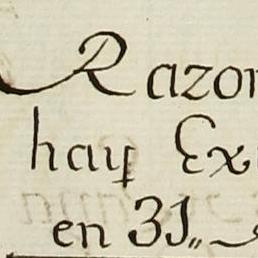 Razon
hay Exi
en 31,,